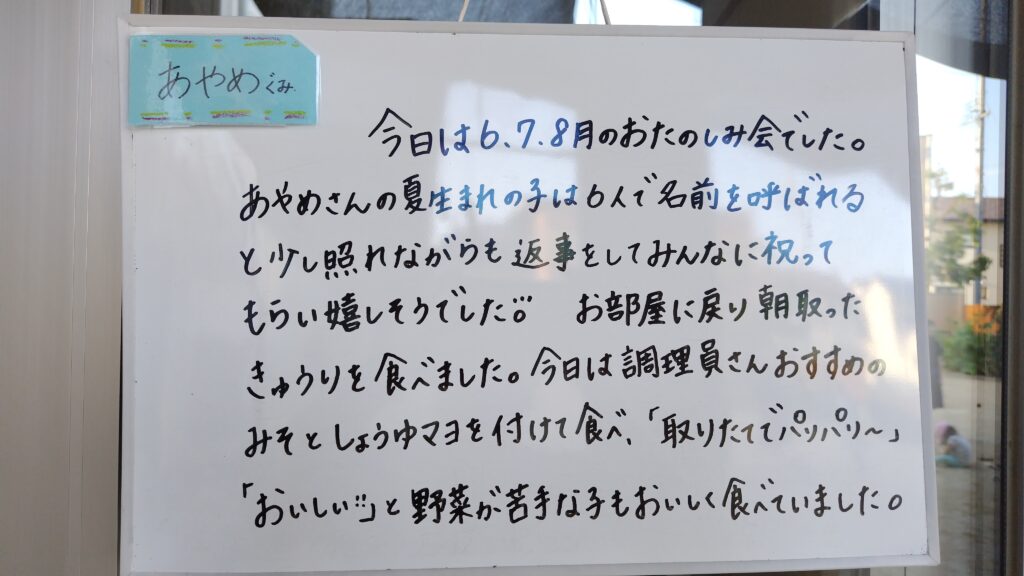 あやめぐみ
今日は6.7.8月のおたのしみ会でした。
あやめさんの夏生まれの子は6人で名前を呼ばれる
と少し照れながらも返事をしてみんなに祝って
もらい嬉しそうでした。 お部屋に戻り朝取った
きゅうりを食べました。今日は調理員さんおすすめの
みそとしょうゆマヨを付けて食べ、「取りたてでパリパリ〜」
「おいしい」と野菜が苦手な子もおいしく食べていました。